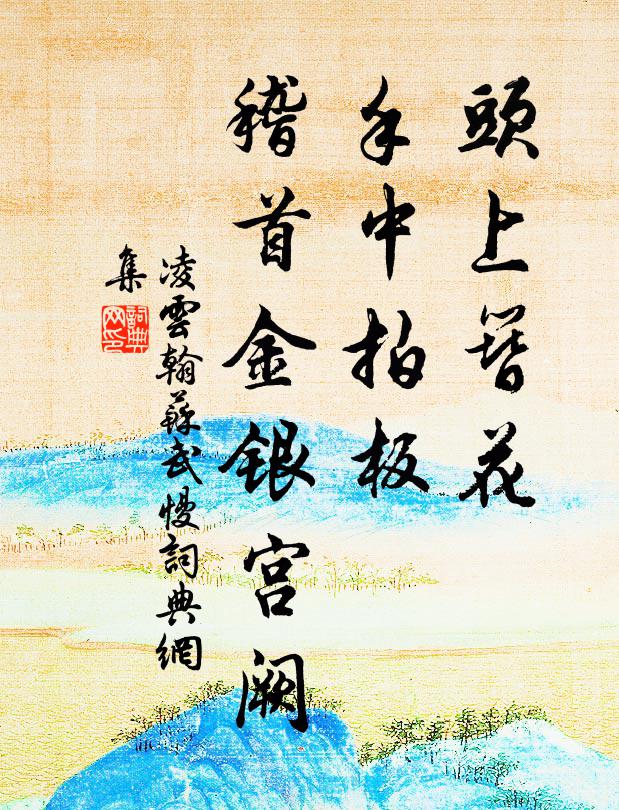 頭上簪花
手中拍板
稽首金銀宮闕
凌雲翰蘇武慢詞典網
集
詞典
网印